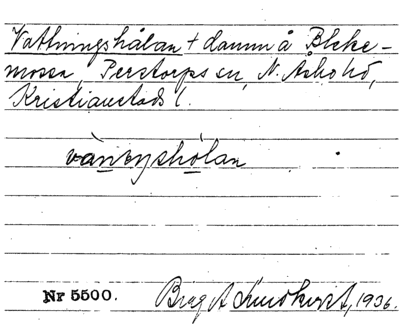 Vattningshålan + damm å Bleke-
mossa, Perstorps sn, N. Åsbo hd,
Kristianstads l.
vànıŋshòlan
Nr 5500. Birgit Lundkvist, 1936.